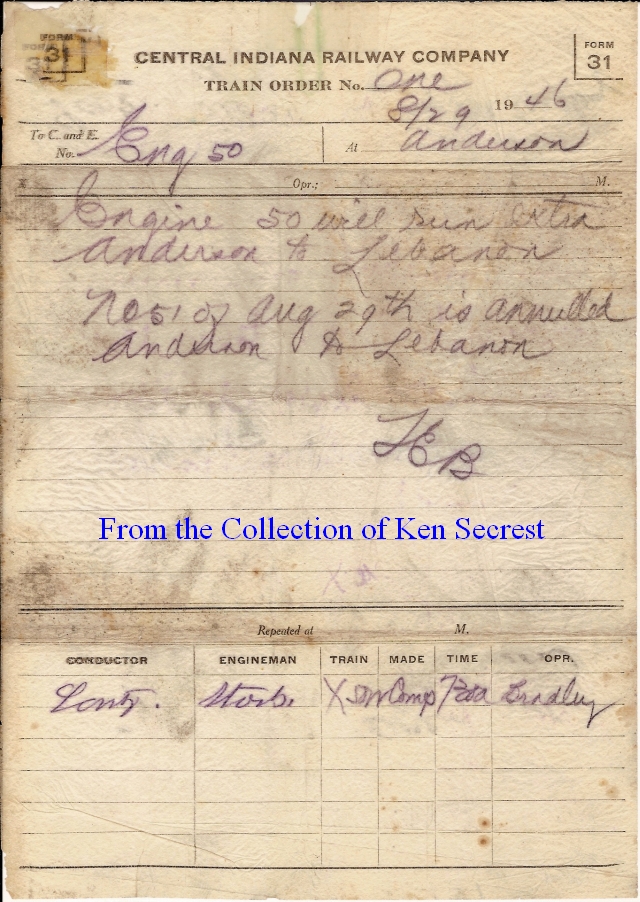 FORM
31
CENTRAL INDIANA RAILWAY COMPANY
FORM
31
TRAIN ORDER No. One
8/29 1946
To C. and E.
No. Eng 50 At Anderson
Opr.; M.
Engine 50 will run Extra
Anderson to Lebanon
No 51 of Aug 29th is annulled
Anderson to Lebanon
HEB
From the Collection of Ken Secrest
Repeated at M.
CONDUCTOR ENGINEMAN TRAIN MADE TIME OPR.
X50W Comp Bradley